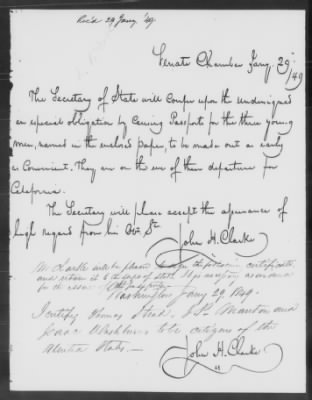 Rec'd 29 Jany '49.
Senate Chamber Jany. 29/49
The Secretary of State will confer upon the undersigned
an especial obligation by Causing Passports for the three young
men, named in the enclosed paper, to be made out as early
as Convenient. They are on the eve of their departure for
California.
The Secretary will please accept the assurance of
high regard from his Obt. St.
John H. Clarke
Mr Clarke will be pleased to sign the following certificate
and return it to the Dept of State
for the
Washington Jany 29' 1849.
I certify Thomas Stead, J. P. Manton and
Isaac to be citizens of the
United States.
John H. Clarke